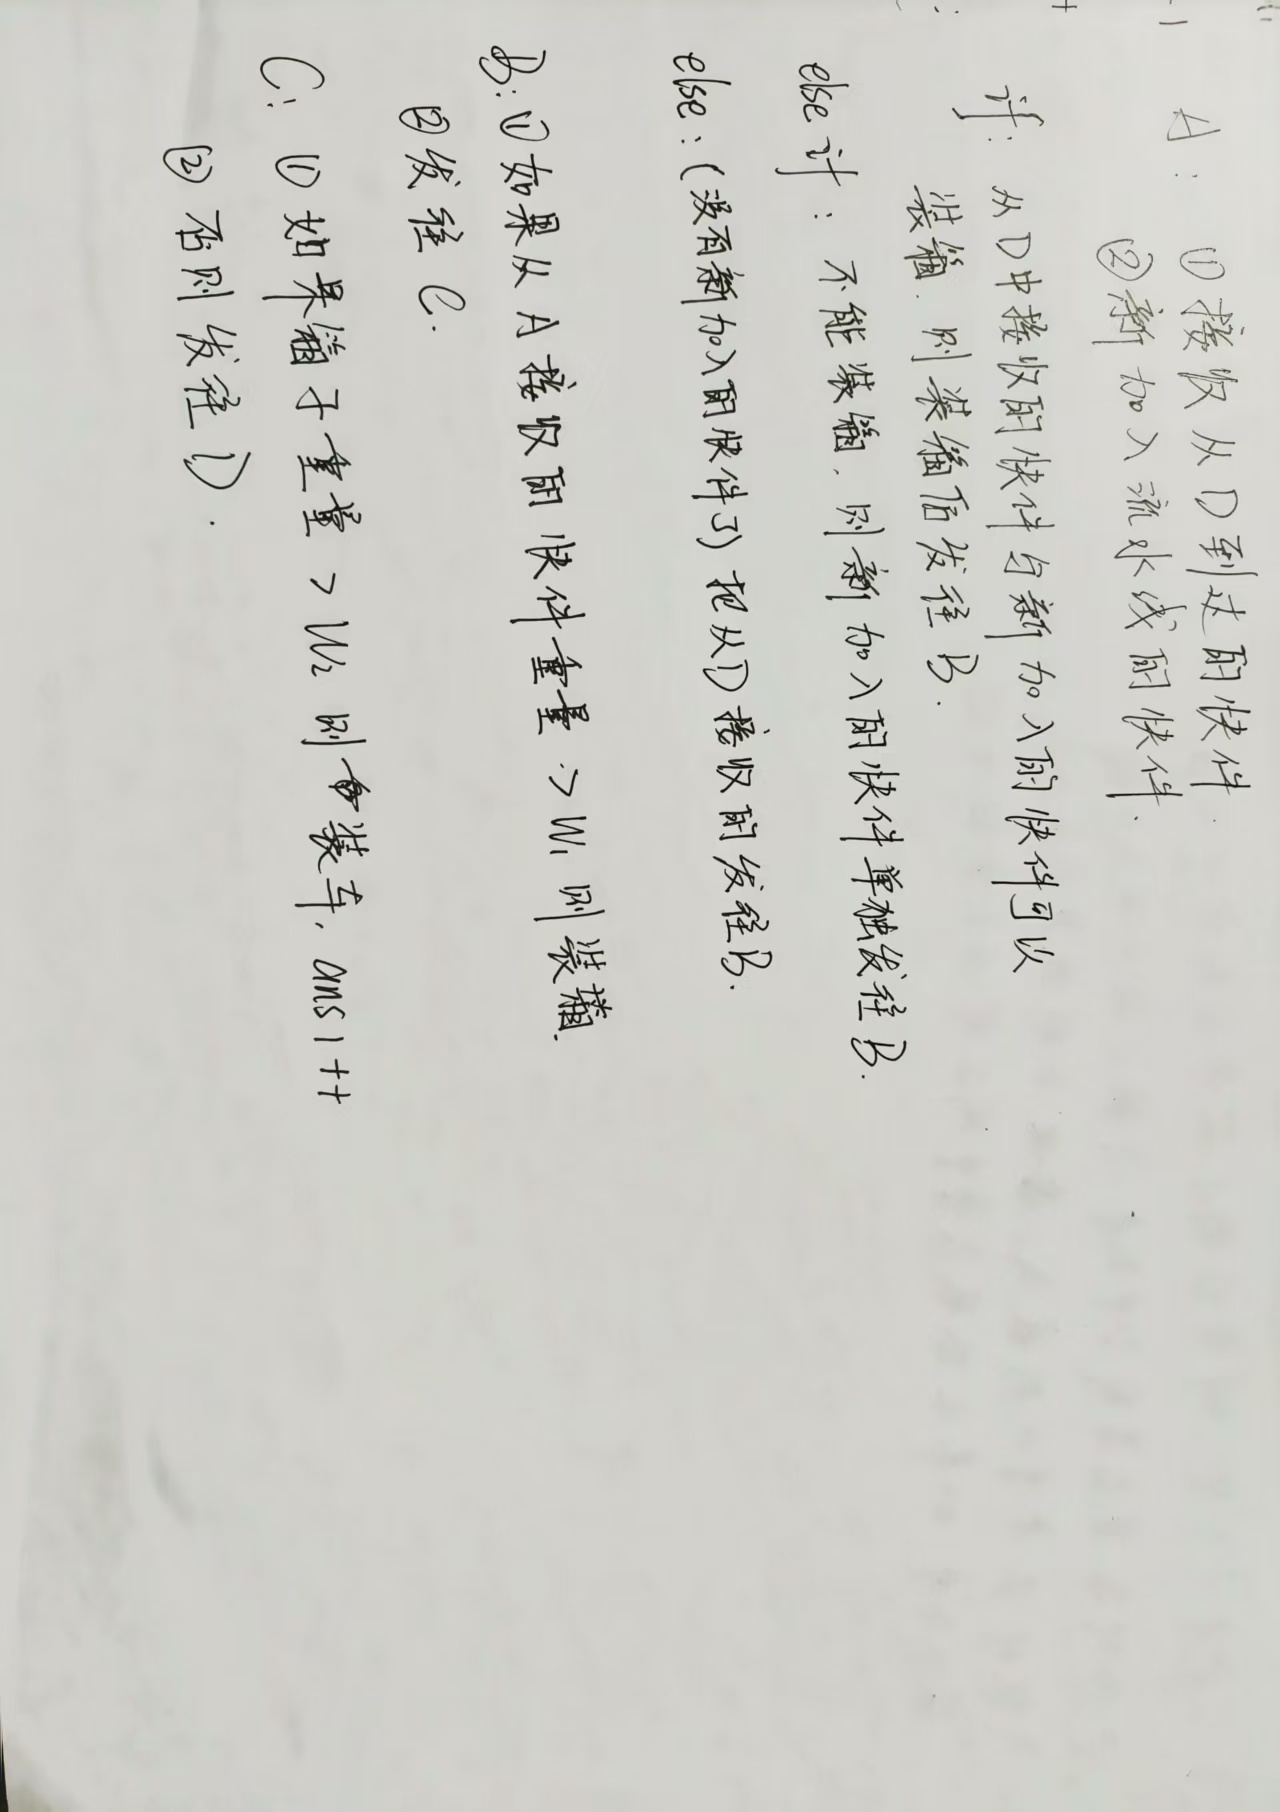 A: ①接收从D到达的快件
②新加入流水线的快件.
if: 从D中接收的快件与新加入的快件可以
装箱, 则装箱后发往B.
else if: 不能装箱, 则新加入的快件单独发往B.
else: (没有新加入的快件了) 把从D接收的发往B.
B: ①如果从A接收的快件重量 > W₁ 则装箱.
②发往C.
C: ①如果箱子重量 > W₂ 则装车, ans1++
②否则发往D.